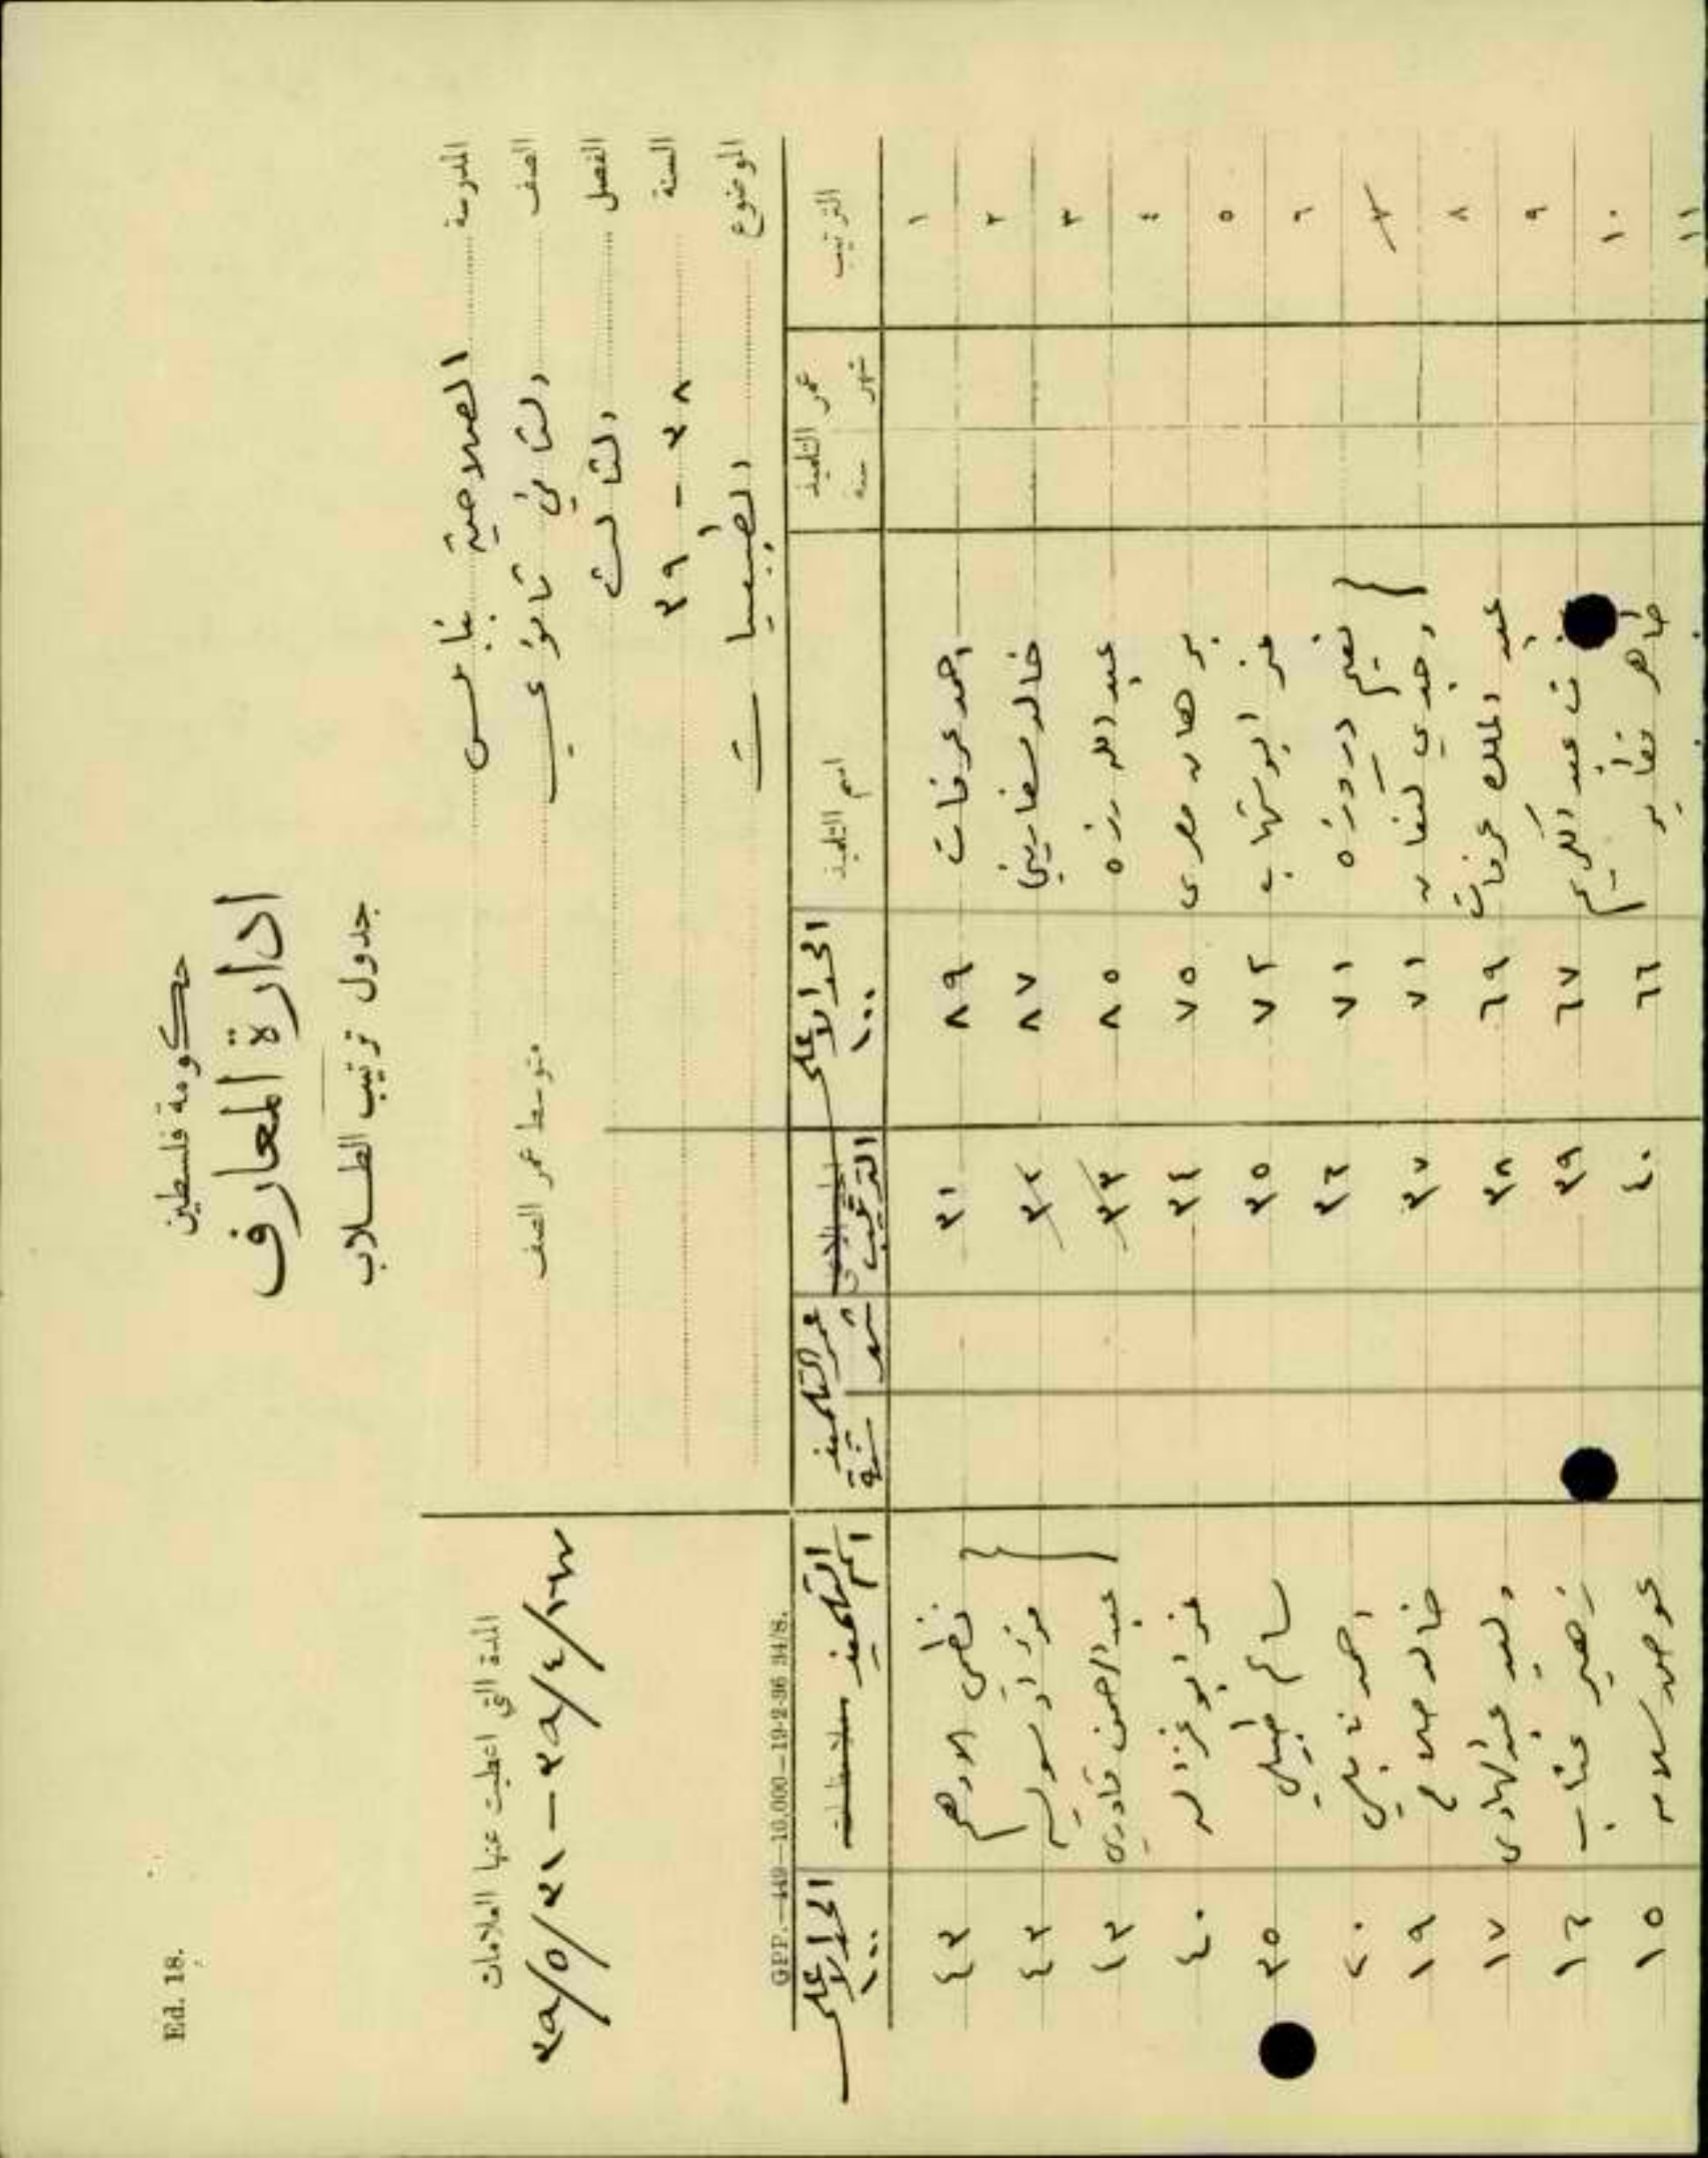 Ed. 18.
حكومة فلسطين
ادارة المعارف
جدول ترتيب الطلاب
المدرسة الصلاحية بنابلس
الصف الثاني ثانوي متوسط عمر الصف
الفصل الثالث
السنة ٣٨ - ٣٩
الموضوع الطبيعيات
المدة التي اعطيت عنها العلامات
٣٩/٥/٣١ - ٣٩/٤/
GPP.—449—10,000—19-2-36 34/S.
الترتيب عمر التلميذ سنة شهر اسم التلميذ الحد الاعلى ١٠٠ الترتيب عمر التلميذ سنة شهر اسم التلميذ الحد الاعلى ١٠٠
١ احمد عرفات ٨٩ ٣١ نظمي الادهم ٤٣
٢ خالد سفاريني ٨٧ ٣٢ ٤٣
٣ عبد الله رزه ٨٥ ٣٣ عبد الرحمن قادري ٤٣
٤ برهان مصري ٧٥ ٣٤ عز ابو غزاله ٤٠
٥ عز ابو شهاب ٧٢ ٣٥ سالم ٣٥
٦ نعيم دروزه ٧١ ٣٦ احمد نابلسي ٢٠
٧ وجدي كنعان ٧١ ٣٧ خالد صلاح ١٩
٨ عبد الملك عرفات ٦٩ ٣٨ وليد عبد الهادي ١٧
٩ عبد الكريم ٦٧ ٣٩ زهير عناب ١٦
١٠ ظافر ٦٦ ٤٠ عوض سلامه ١٥
١١